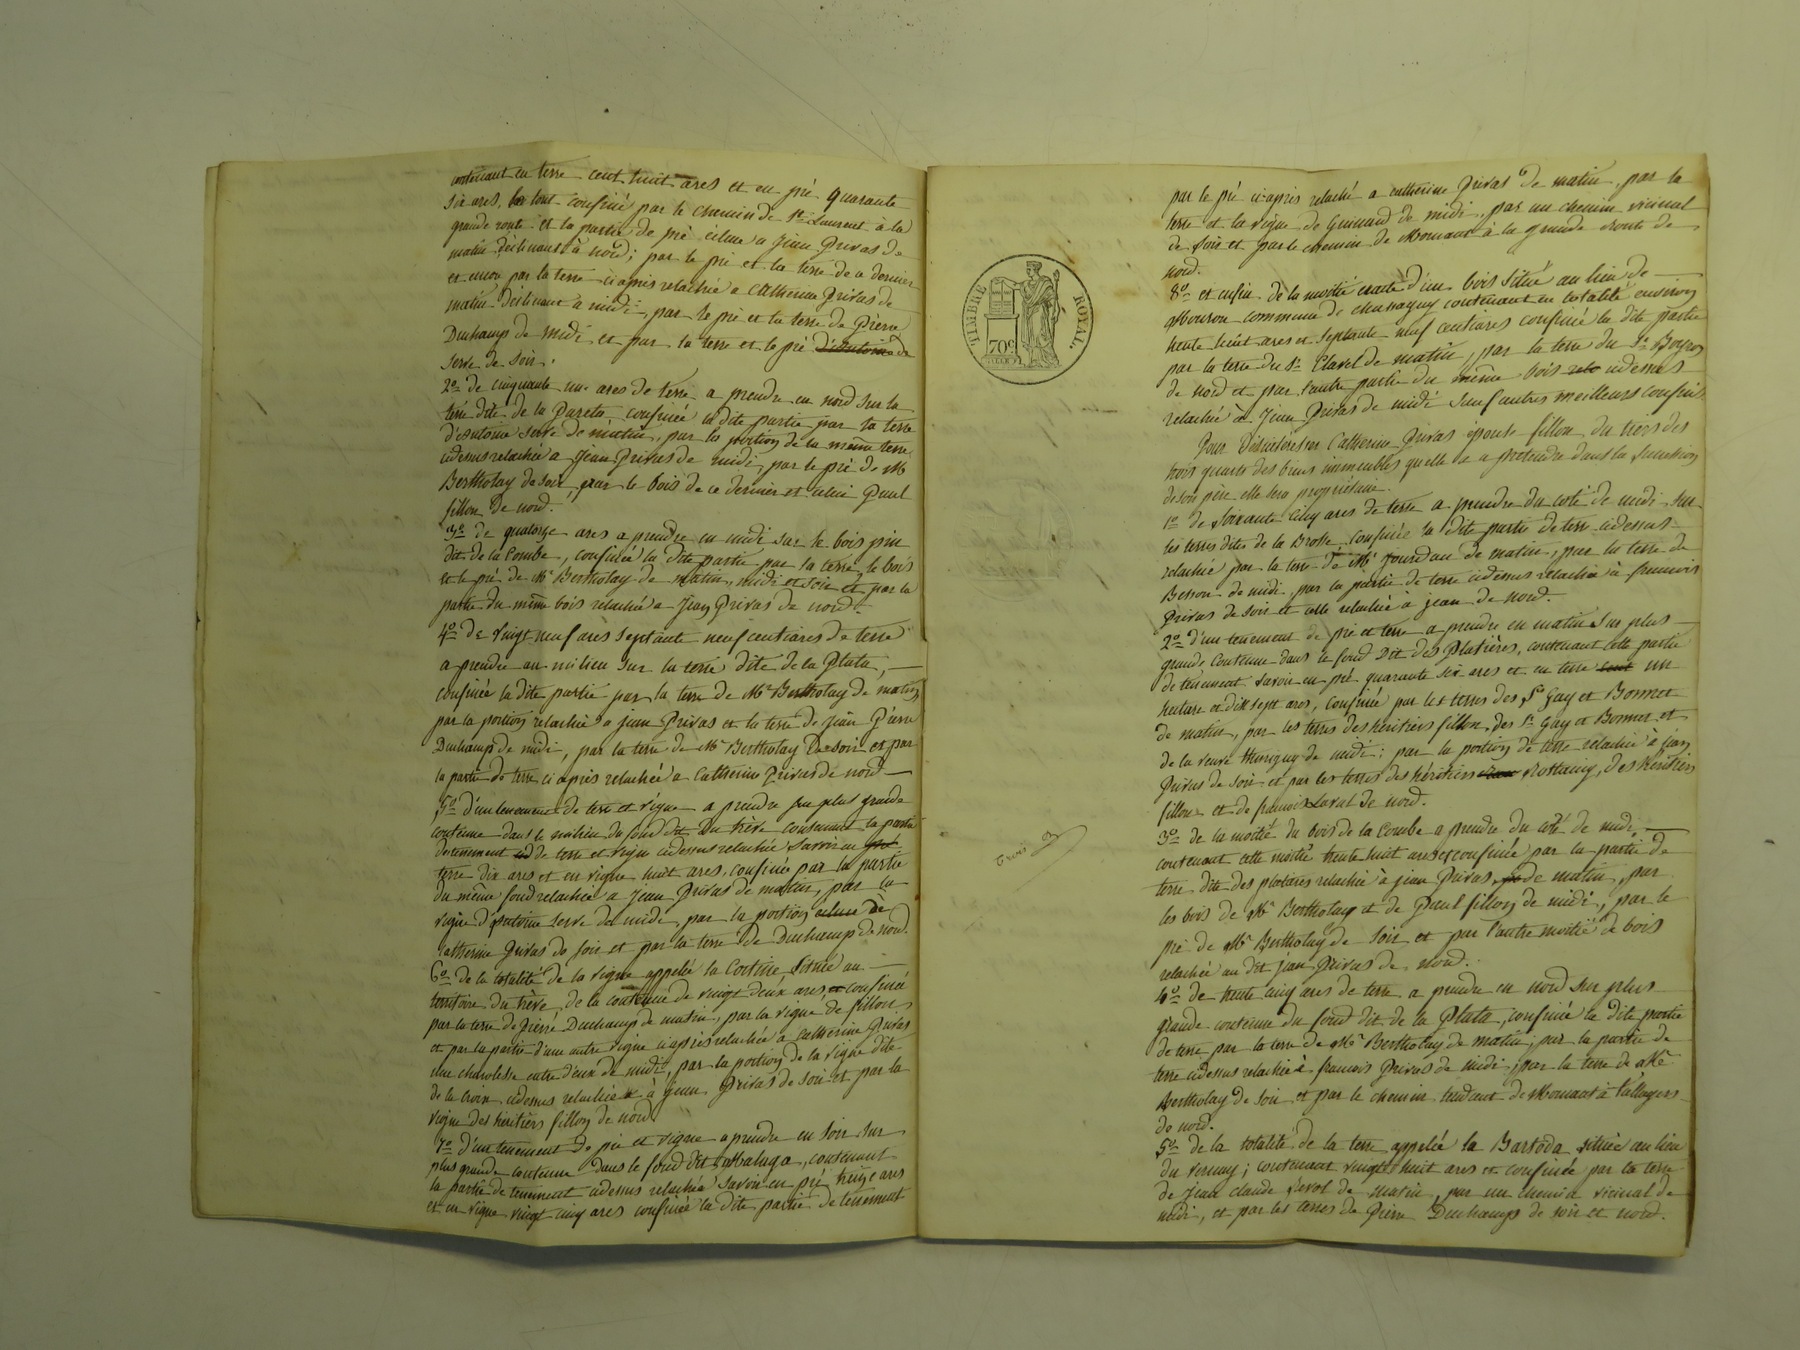 contenant en terre cent huit ares et en pré quarante
six ares, le tout confiné par le chemin de St Laurent à la
grande route et la partie de pré échue a Jean Privas de
matin déclinant à nord; par le pré et la terre de ce dernier
et encor par la terre ci après relachée a Catherine Privas de
matin déclinant a midi, par le pré et la terre de Pierre
Duchamp de midi et par la terre et le pré d'Antoine de
Serve de soir.
2o de cinquante un ares de terre a prendre en nord sur la
terre dite de la Pareta confinée la dite partie par la terre
d'Antoine Serve de matin, par la portion de la même terre
cidessus relachée a Jean Privas de midi, par le pré de Mr
Bertholay de soir, par le bois de ce dernier et celui Paul
fillon de nord.
3o de quatorze ares a prendre en midi sur le bois pin
dit de la Combe, confinée la dite partie par la terre, le bois
et le pré de Mr Bertholay de matin, midi et soir et par la
partie du même bois relachée a Jean Privas de nord.
4o de vingt neuf ares septante neuf centiares de terre
a prendre au milieu sur la terre dite de la Plata,
confinée la dite partie par la terre de Mr Bertholay de matin
par la portion relachée a jean Privas et la terre de Jean Pierre
Duchamp de midi, par la terre de Mr Bertholay de soir et par
la partie de terre ci après relachée a Catherine Privas de nord
5o d'un tenement de terre et vigne a prendre sur plus grande
contenue dans le milieu du fond dit du trève contenant la partie
de tenement de terre et vigne cidessus relachée savoir en pré
terre dix ares et en vigne huit ares, confinée par la partie
du même fond relachée a Jean Privas de matin, par la
vigne d'Antoine Serve de midi, par la portion échue de
Catherine Privas de soir et par la terre de Duchamp de nord.
6o de la totalité de la vigne appelée la Cortine, située au
territoire du trève, de la contenue de vingt deux ares, et confinée
par la terre de Pierre Duchamp de matin, par la vigne de fillon
et par la partie d'une autre vigne ci après relachée à Catherine Privas
une charolesse entre d'eux de midi, par la portion de la vigne dite
de la Croix cidessus relachée à jean Privas de soir et par la
vigne des heritiers fillon de nord.
7o d'un tenement de pré et vigne a prendre en soir sur
plus grande contenue dans le fond dit Malaga, contenant
la partie de tenement cidessus relachée savoir en pré treize ares
et en vigne vingt cinq ares confinée la dite partie de tenement
TIMBRE ROYAL.
70c
trois
par le pré ci après relaché a catherine Privas de matin, par la
terre et la vigne de Guinand de midi, par un chemin vicinal
de soir et par le chemin de Mornant à la grande route de
nord.
8o et enfin de la moitié exacte d'un bois situé au lieu de
Mouron commune de chassagny contenant en totalité environ
trente huit ares et septante neuf centiares confinée la dite partie
par la terre du Sr Clavel de matin, par la terre du Sr Boyron
de nord et par l'autre partie du même bois rela cidessus
relachée à Jean Privas de midi sauf autres meilleurs confins
Pour désinteresser Catherine Privas épouse fillon du tiers des
trois quarts des biens immeubles quelle a a prétendre dans la succession
de son père elle sera propriétaire.
1o de soixante cinq ares de terre a prendre du coté de midi sur
les terres dites de la Brosse, confinée la dite partie de terre cidessus
relachée par la terre de Mr Jourdan de matin, par la terre de
Besson de midi, par la partie de terre cidessus relachée à francois
Privas de soir et celle relachée à jean de nord.
2o d'un tenement de pré et terre a prendre en matin sur plus
grande contenue dans le fond dit des Platières, contenant cette partie
de tenement savoir en pré quarante six ares et en terre cent un
hectare et dix sept ares, confinée par les terres des Sr Gay et Bonnet
de matin, par les terres des héritiers fillon, des Sr Gay et Bonnet et
de la veuve thivigny de midi; par la portion de terre relachée à jean
Privas de soir et par les terres des héritiers Rottany, des héritiers
fillon et de francois Laval de nord.
3o de la moitié du bois de la Combe a prendre du côté de midi
contenant cette moitié trente huit ares et confinée par la partie de
terre dite des platières relachée à jean Privas de matin, par
les bois de Mr Bertholay et de Paul fillon de midi, par le
pré de Mr Bertholay de soir et par l'autre moitié de bois
relachée au dit jean Privas de nord.
4o de trente cinq ares de terre a prendre en nord sur plus
grande contenue du fond dit de la Plata, confinée la dite partie
de terre par la terre de Mr Bertholay de matin, par la partie de
terre cidessus relachée à francois Privas de midi, par la terre de Mr
Bertholay de soir et par le chemin tendant de Mornant à Talluyers
de nord.
5o de la totalité de la terre appelée la Bartoda située au lieu
du vernay; contenant vingt huit ares et confinée par la terre
de Jean claude de matin, par un chemin vicinal de
midi, et par les terres de Pierre Duchamp de soir et nord.